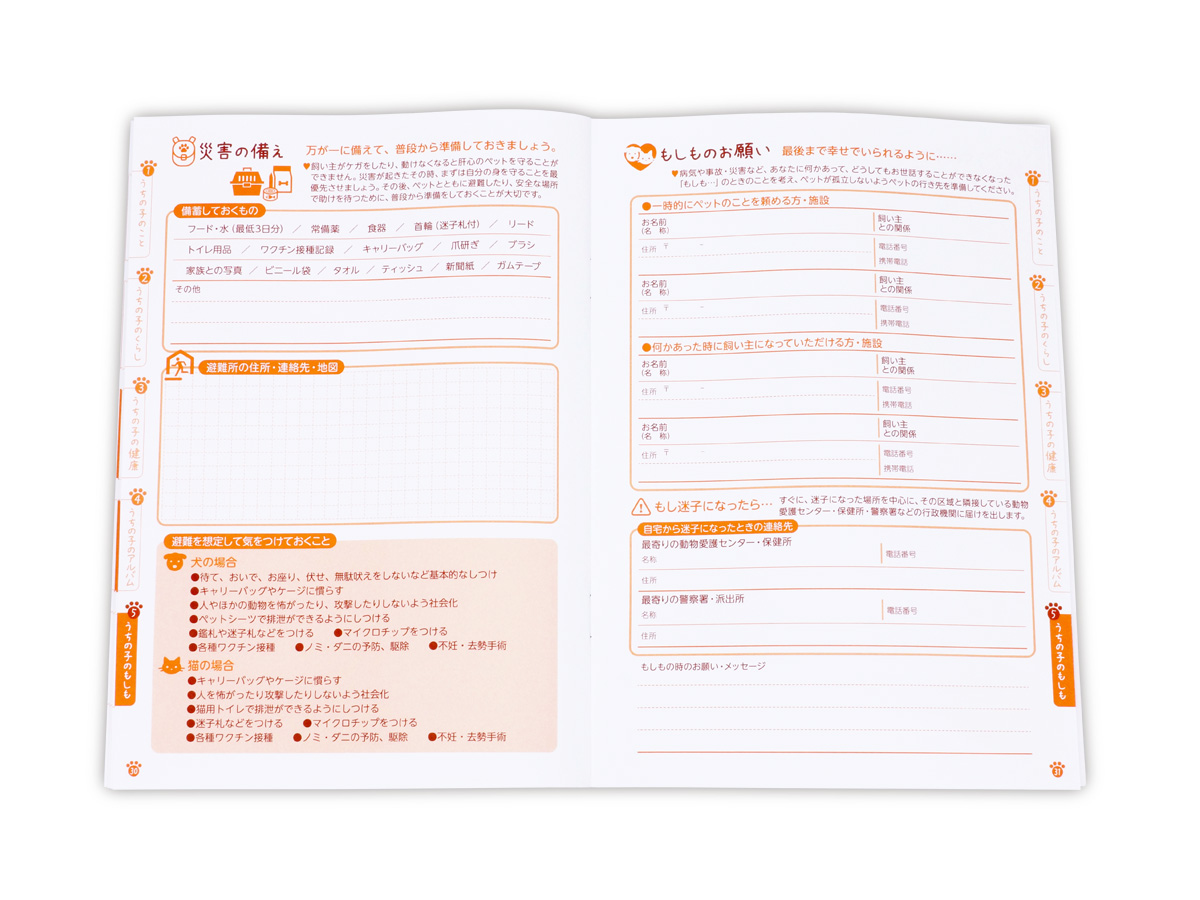 災害の備え
万が一に備えて、普段から準備しておきましょう。
♥飼い主がケガをしたり、動けなくなると肝心のペットを守ることが
できません。災害が起きたその時、まずは自分の身を守ることを最
優先させましょう。その後、ペットとともに避難したり、安全な場所
で助けを待つために、普段から準備をしておくことが大切です。
備蓄しておくもの
フード・水(最低3日分) / 常備薬 / 食器 / 首輪(迷子札付) / リード
トイレ用品 / ワクチン接種記録 / キャリーバッグ / 爪研ぎ / ブラシ
家族との写真 / ビニール袋 / タオル / ティッシュ / 新聞紙 / ガムテープ
その他
避難所の住所・連絡先・地図
避難を想定して気をつけておくこと
犬の場合
●待て、おいで、お座り、伏せ、無駄吠えをしないなど基本的なしつけ
●キャリーバッグやケージに慣らす
●人やほかの動物を怖がったり、攻撃したりしないよう社会化
●ペットシーツで排泄ができるようにしつける
●鑑札や迷子札などをつける ●マイクロチップをつける
●各種ワクチン接種 ●ノミ・ダニの予防、駆除 ●不妊・去勢手術
猫の場合
●キャリーバッグやケージに慣らす
●人を怖がったり攻撃したりしないよう社会化
●猫用トイレで排泄ができるようにしつける
●迷子札などをつける ●マイクロチップをつける
●各種ワクチン接種 ●ノミ・ダニの予防、駆除 ●不妊・去勢手術
1
うちの子のこと
2
うちの子のくらし
3
うちの子の健康
4
うちの子のアルバム
5
うちの子のもしも
30
もしものお願い
最後まで幸せでいられるように……
♥病気や事故・災害など、あなたに何かあって、どうしてもお世話することができなくなった
「もしも…」のときのことを考え、ペットが孤立しないようペットの行き先を準備してください。
●一時的にペットのことを頼める方・施設
お名前
(名 称)
飼い主
との関係
住所 〒 -
電話番号
携帯電話
お名前
(名 称)
飼い主
との関係
住所 〒 -
電話番号
携帯電話
●何かあった時に飼い主になっていただける方・施設
お名前
(名 称)
飼い主
との関係
住所 〒 -
電話番号
携帯電話
お名前
(名 称)
飼い主
との関係
住所 〒 -
電話番号
携帯電話
もし迷子になったら…
すぐに、迷子になった場所を中心に、その区域と隣接している動物
愛護センター・保健所・警察署などの行政機関に届けを出します。
自宅から迷子になったときの連絡先
最寄りの動物愛護センター・保健所
名称
電話番号
住所
最寄りの警察署・派出所
名称
電話番号
住所
もしもの時のお願い・メッセージ
1
うちの子のこと
2
うちの子のくらし
3
うちの子の健康
4
うちの子のアルバム
5
うちの子のもしも
31